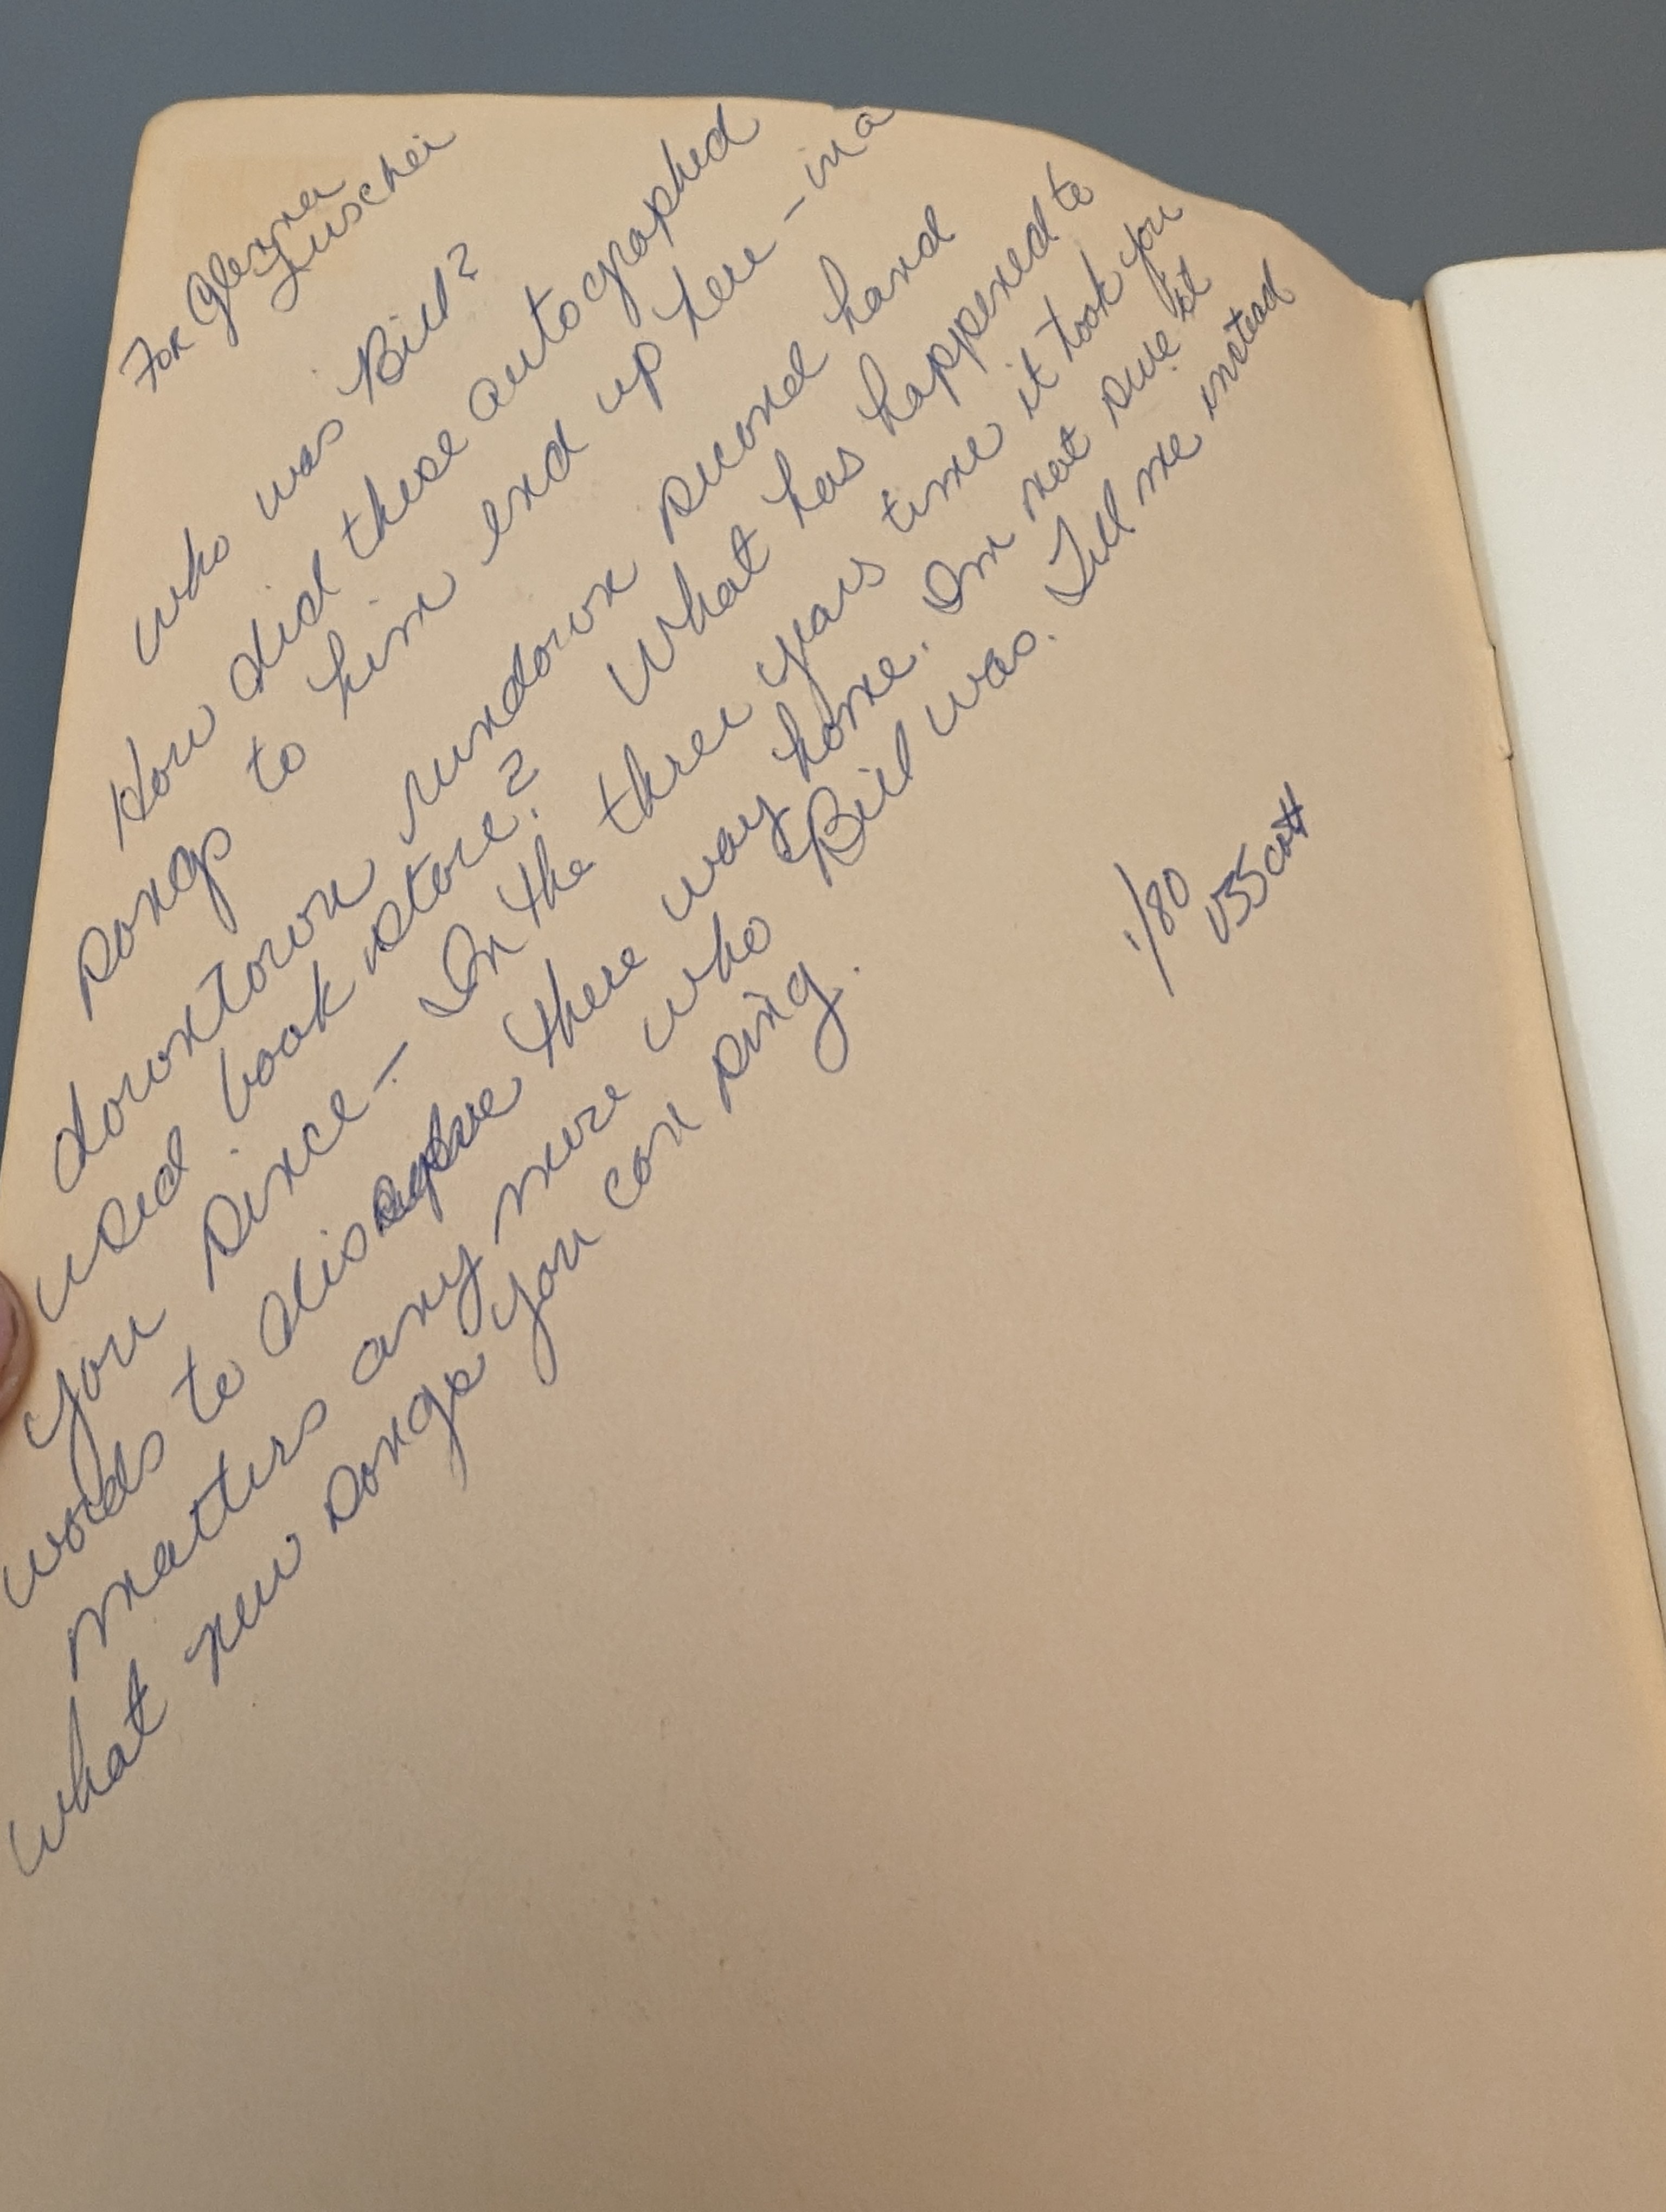 For Glenna
Luschei
Who was Bill?
How did these autographed
songs to him end up here – in a
downtown rundown second hand
used book store? What has happened to
you since – In the three years time it took you
words to there way home. Im not sure it
matters any more who Bill was. Tell me instead
what new songs you can sing.
1/80